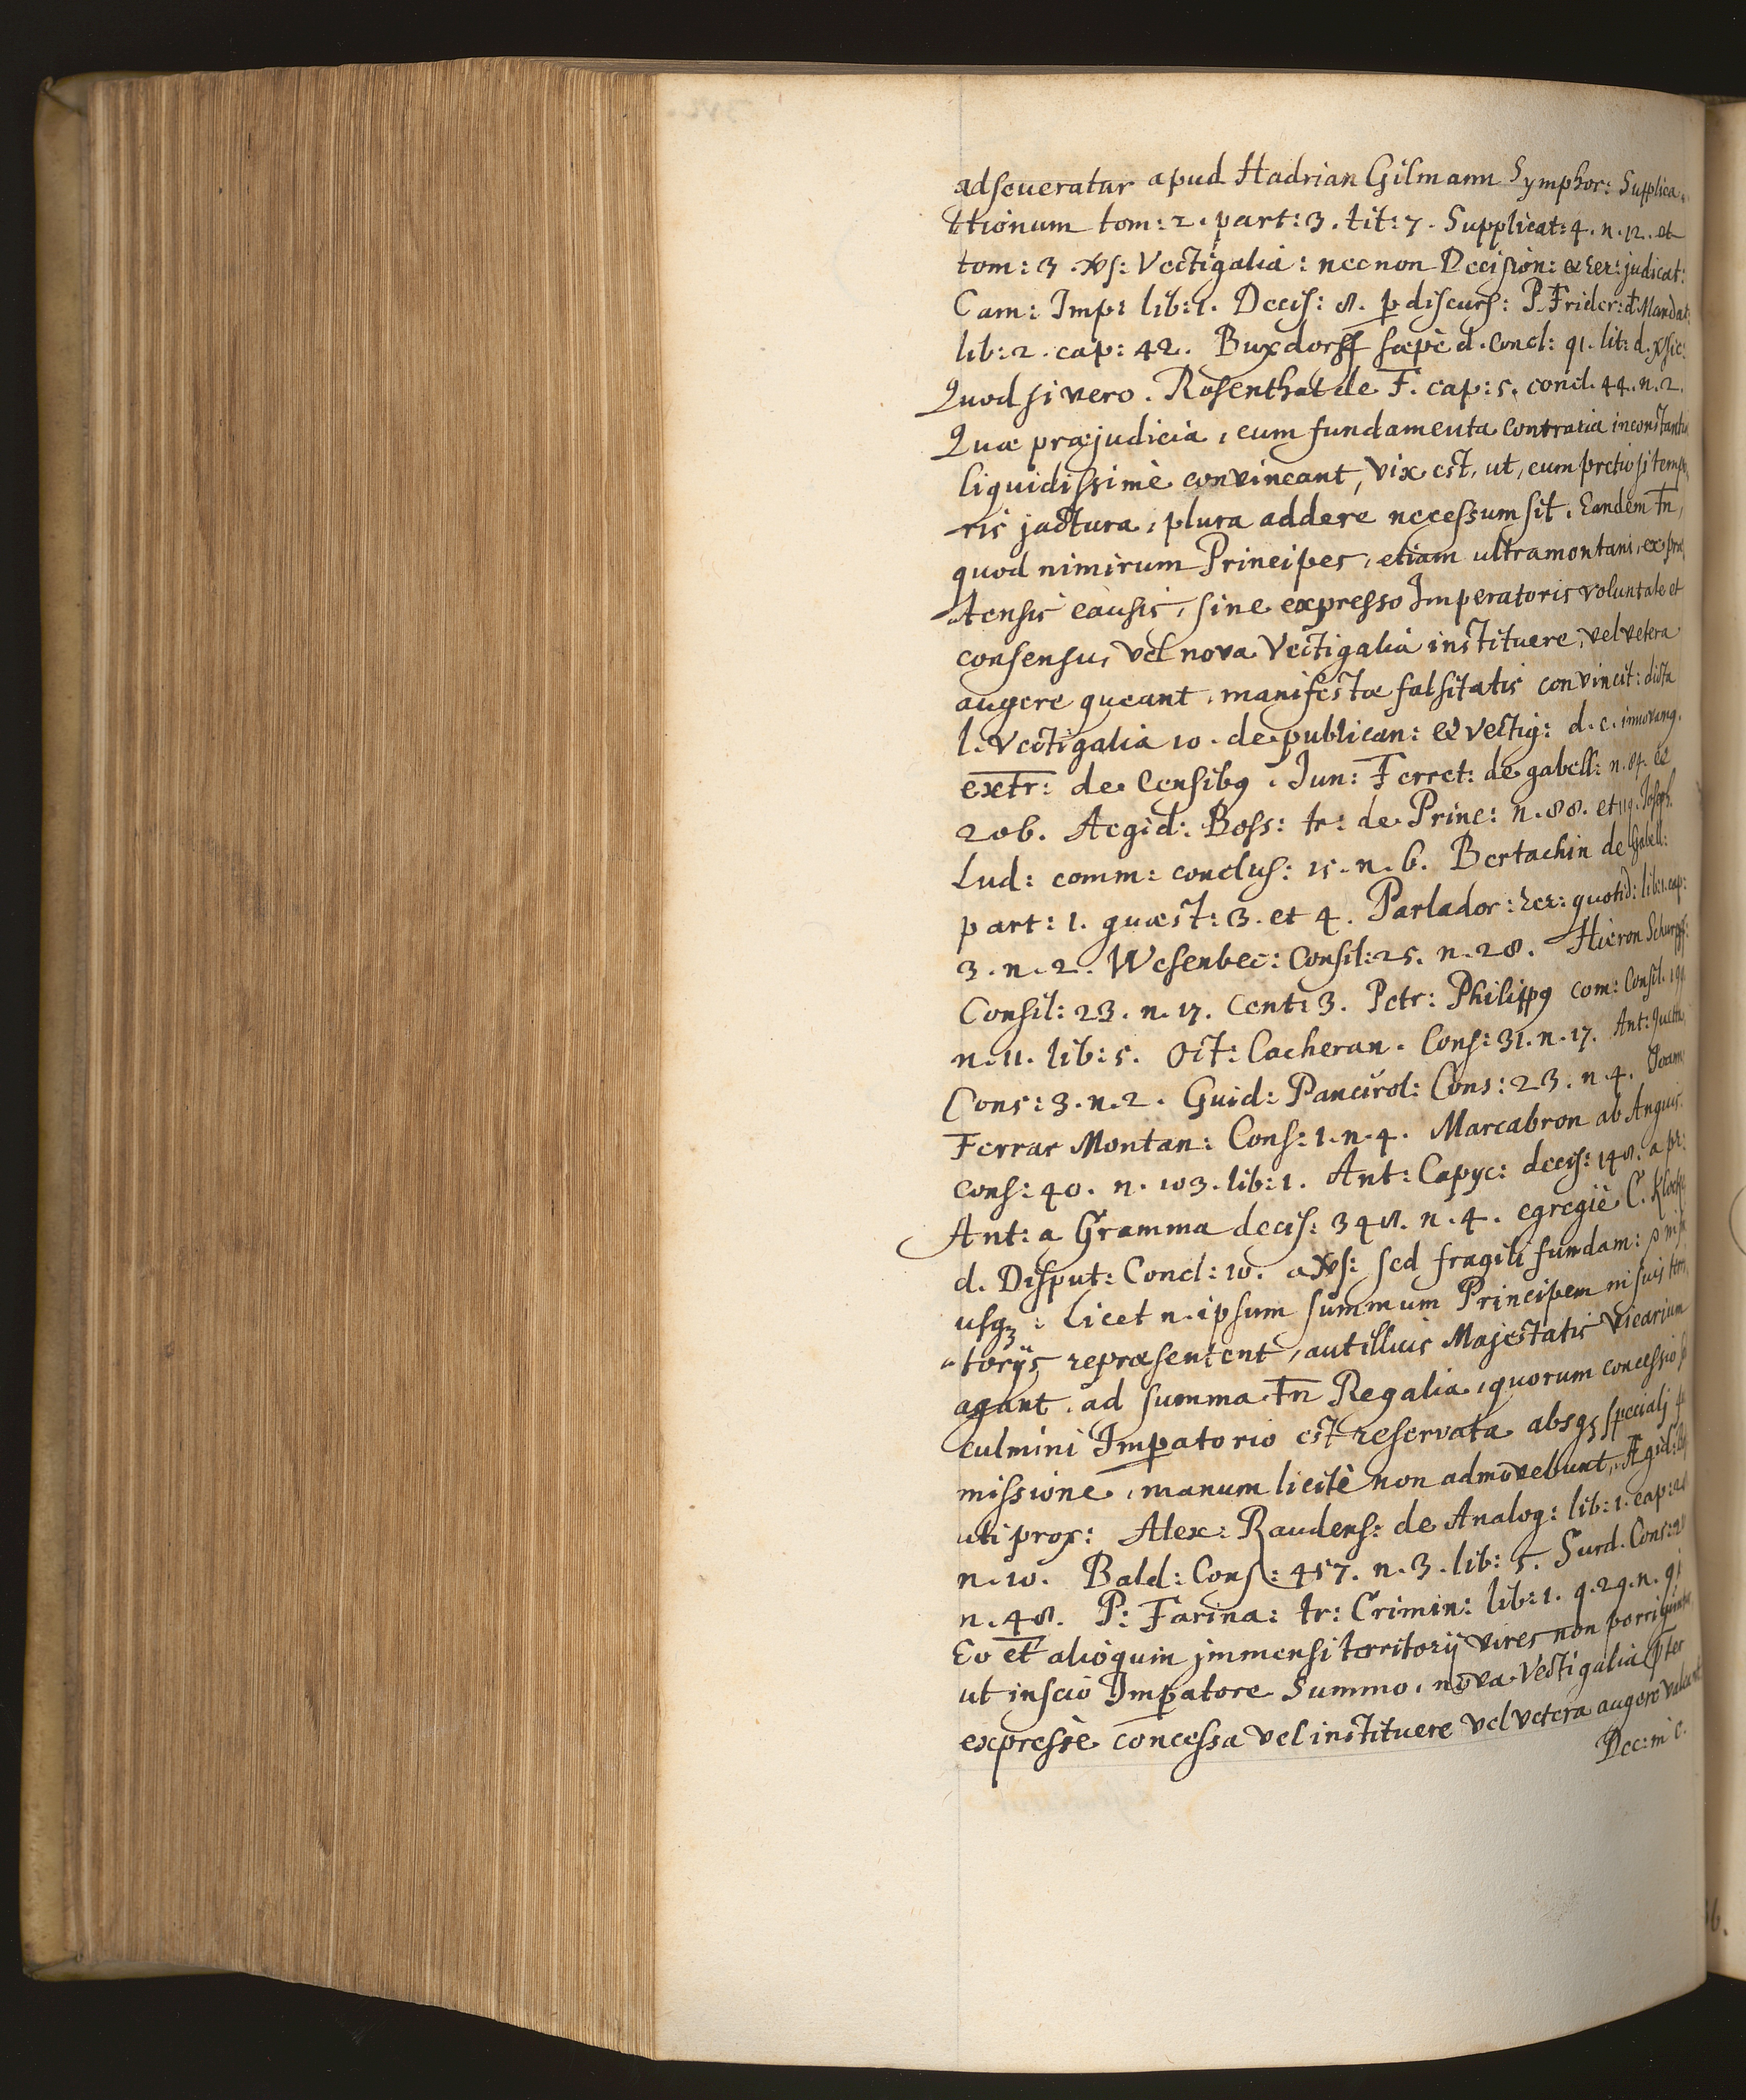 adseueratur apud Hadrian Gilmann Symphor: Supplica-
tionum tom: 2. part: 3. tit: 7. Supplicat: 4. n. 12. et
tom: 3. Vectigalia: nec non Decision: & rer: judicat:
Cam: Imp: lib: 1. Decis: 8. p discurs: P. Frider: d Mandat:
lib: 2. cap: 42. Buxdorff sæpè d. Concl: 91. lit: d. sic:
Quod si vero. Rosenthal de F. cap: 5. concl. 44. n. 2.
Quæ præjudicia, cum fundamenta contraria inconstantiæ
liquidissimè convincant, vix est, ut, cum pretiosi tempo
ris jactura, plura addere necessum sit. Eandem tn,
quod nimirum Principes, etiam ultramontani, ex præ
tensis causis, sine expresso Imperatoris voluntate et
consensu, vel nova Vectigalia instituere, vel vetera
augere queant, manifestæ falsitatis convincit: dicta
l. Vectigalia 10. de publican: & vectig: d. c. innovamg.
extr: de Censibg. Jun: Ferret: de gabell: n. 84. &
206. Aegid: Boss: tr: de Princ: n. 88. et 119. Joseph.
Lud: comm: conclus: 15. n. 6. Bertachin de Gabell:
part: 1. quæst: 3. et 4. Parlador: rer: quotid: lib: 1. cap:
3. n. 2. Wesenbec: Consil: 25. n. 28. Hieron Schurpf:
Consil: 23. n. 17. Cent: 3. Petr: Philippg com: Consil. 191
n. 11. lib: 5. Oct: Cacheran. Cons: 31. n. 17. Ant:
Cons: 3. n. 2. Guid: Pancirol: Cons: 23. n. 4. Joann
Ferrar Montan: Cons: 1. n. 4. Marcabron ab Anguis.
cons: 40. n. 103. lib: 1. Ant: Capyc: decis: 148. a pr:
Ant: a Gramma decis: 348. n. 4. egregiè C. Klock
d. Disput: Concl: 10. a sed fragili fundam:
usqz: Licet n. ipsum summum Principem in suis terri
torijs repræsentent, aut illius Majestatis Vicarium
agant, ad summa tn Regalia, quorum concessio
culmini Impatorio est reservata absqz specialj
missione, manum licitè non admovebunt, Ægid:
uti prox: Alex: Raudens: de Analog: lib: 1. cap:
n. 10. Bald: Cons: 457. n. 3. lib: 5. Surd. Cons:
n. 48. P: Farina: tr: Crimin: lib: 1. q. 29. n. 91
Eo et alioquin jmmensi territorij vires non porriguntur
ut inscio Impatore Summo, nova Vectigalia pter
expressè concessa vel instituere vel vetera augere valeant
Dec: in c.